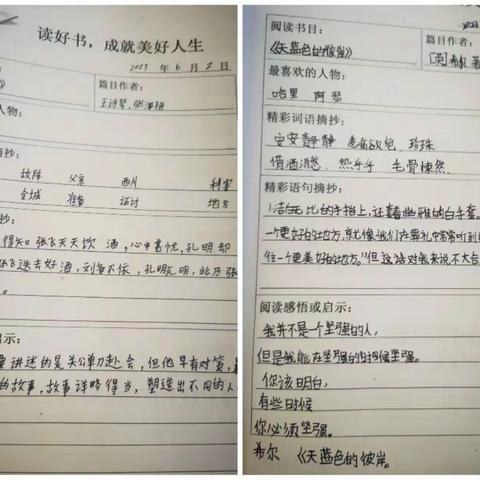 读好书，成就美好人生
2023 年 6 月 2 日
》
篇目作者：
王诗琴、张
人物：
摘抄：
故阵 父亲 西川
全城 准备 讨
地方
抄：
得知 张飞天天饮 酒，心中甚忧，孔明却
张飞送去好酒，刘备不依，孔明
。
启示：
讲述的是关公单刀赴会，但他早有对策，
的故事，故事详略得当，塑造出不同的人
2023
阅读书目：
《天蓝色的彼岸》
篇目作者：
[英]希尔 著
最喜欢的人物：
哈里 阿瑟
精彩词语摘抄：
安安静静 珍珠
借酒消愁 热乎乎 毛骨悚然
精彩语句摘抄：
洁白无比的手指上，还戴着幽雅的白手套。
一个更好的地方，就像我们在葬礼中常常听到
往一个更美好的地方。”但这话对我来说不大合
阅读感悟或启示：
我并不是一个坚强的人，
但是我能在坚强的时候坚强。
你该明白，
有些时候
你必须坚强。
希尔 《天蓝色的彼岸。